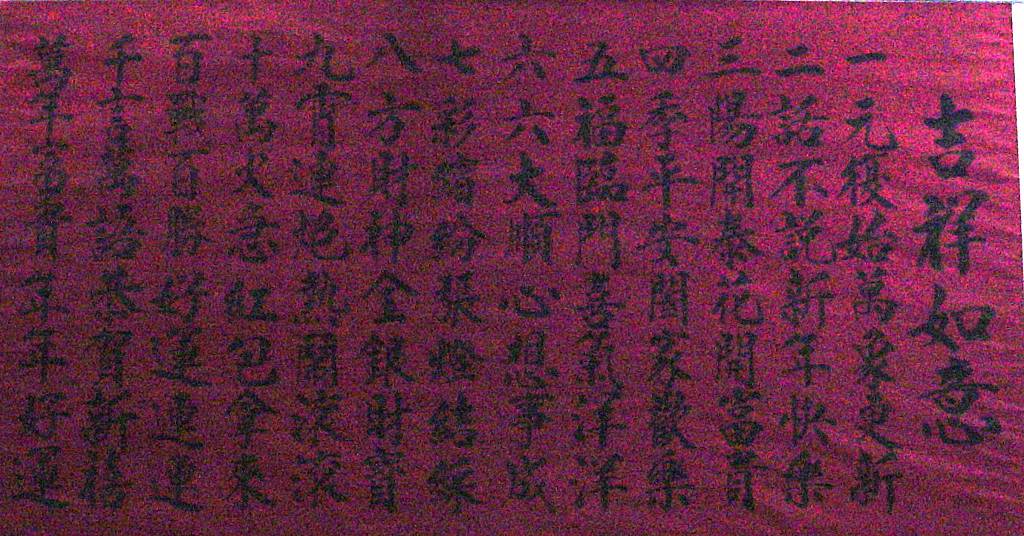 吉祥如意
一元復始萬象更新
二話不說新年快樂
三陽開泰花開富貴
四季平安闔家歡樂
五福臨門喜氣洋洋
六六大順心想事成
七彩繽紛張燈結綵
八方財神金銀財寶
九霄連炮熱鬧滾滾
十萬火急紅包拿來
百戰百勝好運連連
千言萬語恭賀新禧
萬年富貴年年好運